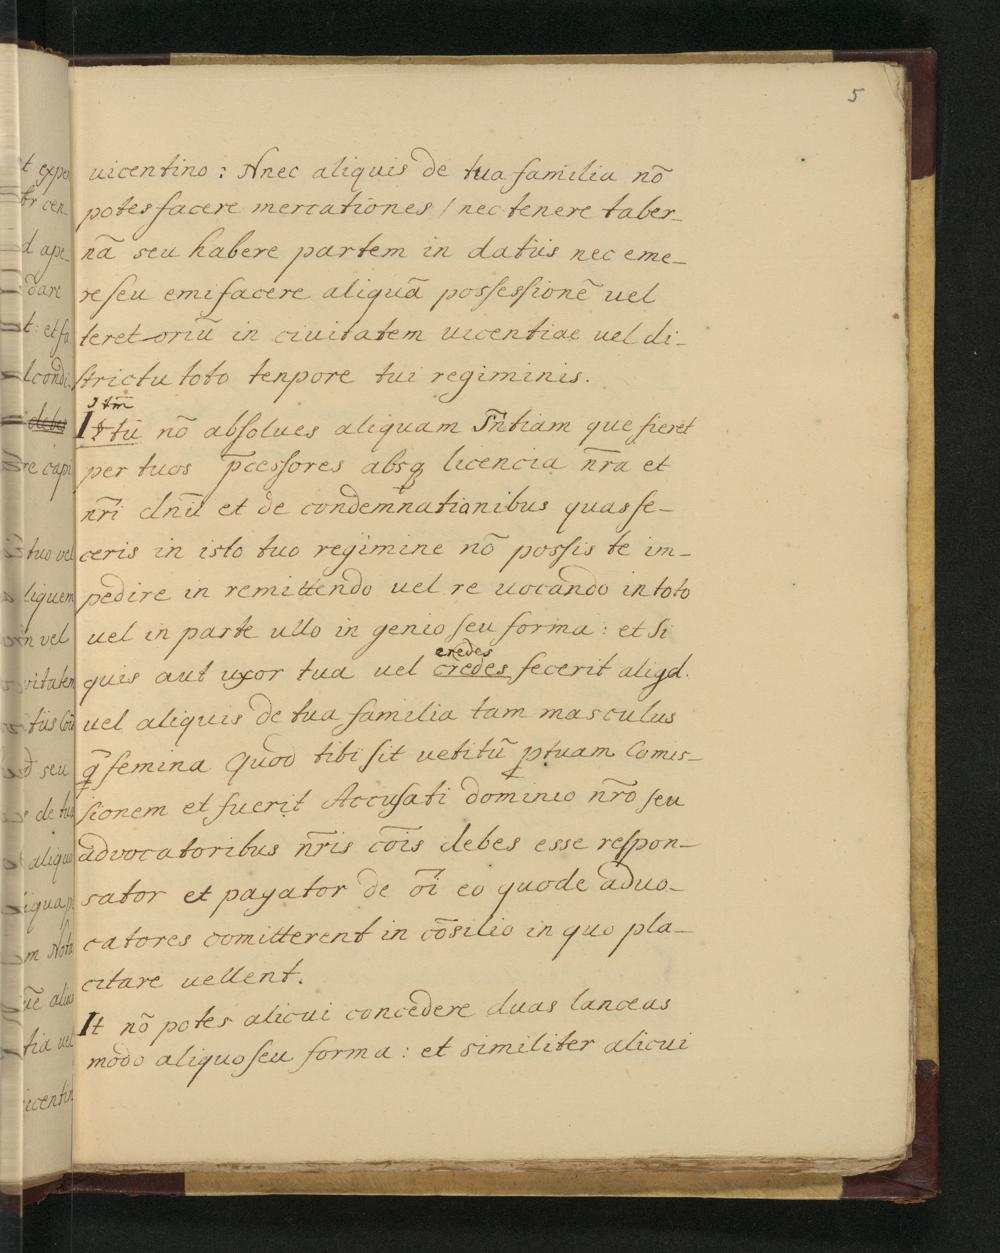 5
uicentino : Nnec aliquis de tua familia nō
potes facere mercationes / nec tenere taber_
nā seu habere partem in datiis nec eme_
re seu emi facere aliquā possessionē uel
teret_oriū in ciuitatem uicentiae uel di_
strictu toto tenpore tui regiminis.
Ittū nō absolues aliquam Sn̄tiam que fieret
per tuos p̄cessores absq licencia nr̄a et
nr̄i dnū et de condemnationibus quas fe_
ceris in isto tuo regimine nō possis te im_
pedire in remittendo uel re uocando in toto
uel in parte ullo in genio seu forma : et si
eredes
quis aut uxor tua uel cr̄edes fecerit aliqd.
uel aliquis de tua familia tam masculus
q̄ femina Quod tibi sit uetitū ptuam Comis_
sionem et fuerit Accusati dominio nr̄o seu
advocatoribus nr̄is cōis debes esse respon_
sator et pagator de ōi eo quode aduo_
catores comitterent in cōsilio in quo pla_
citare uellent.
It nō potes alicui concedere duas lanceas
modo aliquo seu forma : et similiter alicui